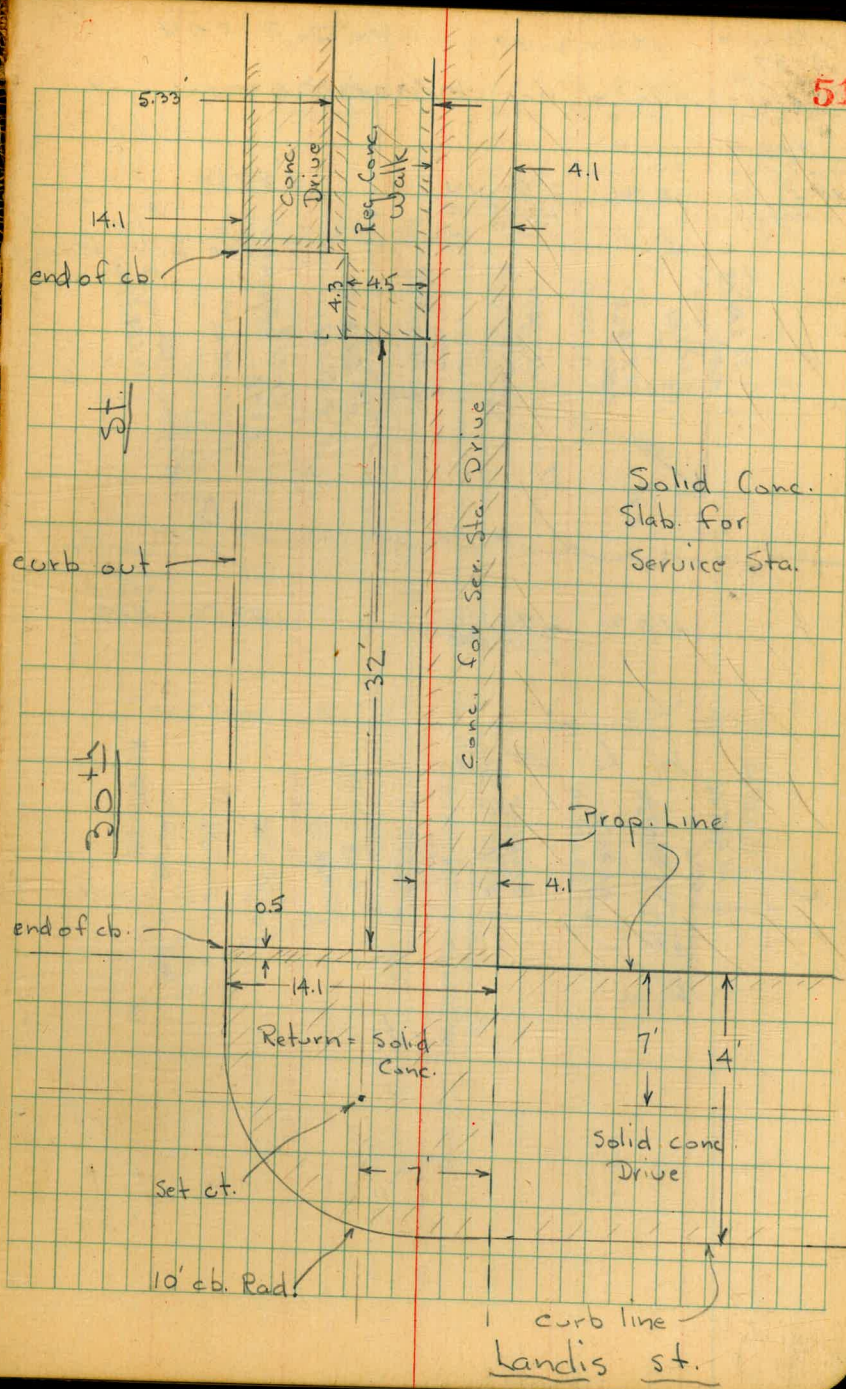 51
5.33'
Conc.
Drive
Reg. Conc.
Walk
4.1
14.1
end of cb
4.3
4.5
St.
Solid Conc.
Slab. for
Service Sta.
curb out
Conc. for Ser. Sta. Drive
32'
30th
Prop. Line
4.1
0.5
end of cb.
14.1
Return = Solid
Conc.
7'
14'
Solid conc
Drive
7'
Set ct.
10' cb. Rad.
curb line
Landis st.